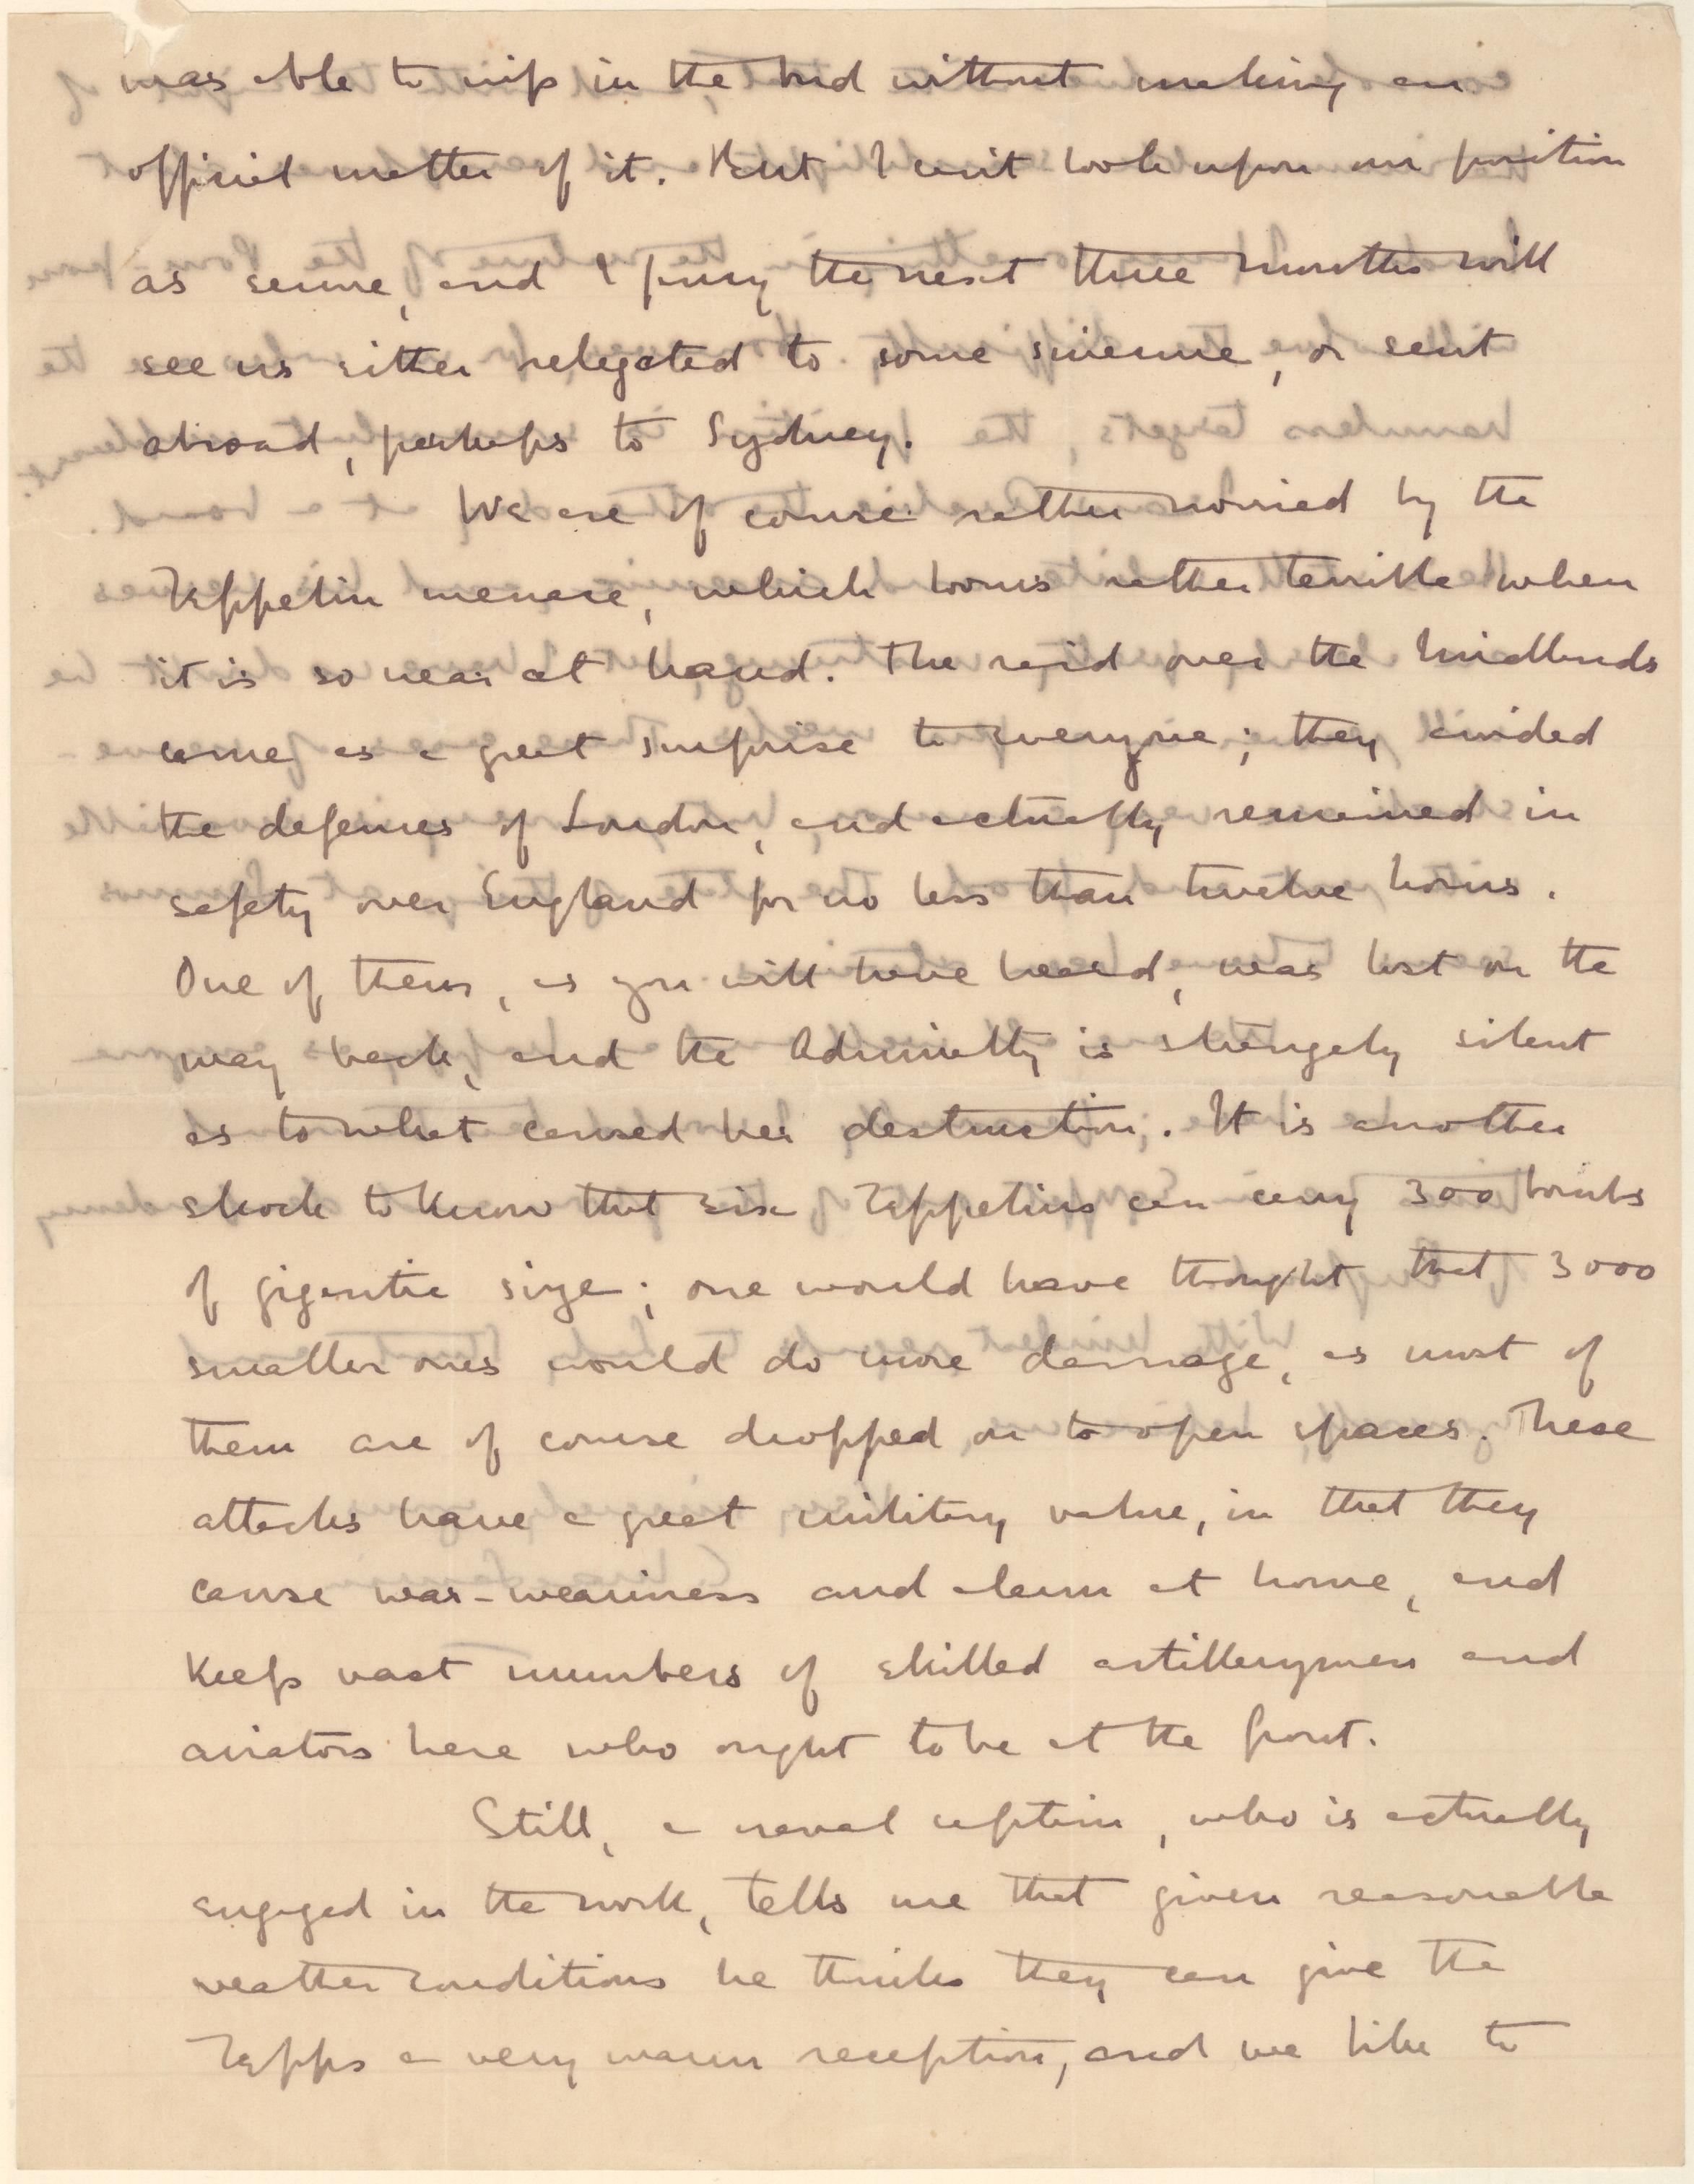 was able to nip in the bud without making an
official matter of it. But I can't look upon our position
as secure, and I fancy the next three months will
see us either relegated to some sinecure, or sent
abroad, perhaps to Sydney.
We are of course rather worried by the
Zeppelin menace, which looms rather terrible when
it is so near at hand. The raid over the Midlands
came as a great surprise to everyone; they avoided
the defences of London, and actually remained in
safety over England for no less than twelve hours.
One of them, as you will have heard, was lost on the
way back, and the Admiralty is strangely silent
as to what caused her destruction. It is another
shock to know that six Zeppelins can carry 300 bombs
of gigantic size; one would have thought that 3000
smaller ones would do more damage, as most of
them are of course dropped on to open spaces. These
attacks have a great military value, in that they
cause war-weariness and alarm at home, and
keep vast numbers of skilled artillerymen and
aviators here who ought to be at the front.
Still, a naval captain, who is actually
engaged in the work, tells me that given reasonable
weather conditions he thinks they can give the
Zepps a very warm reception, and we like to